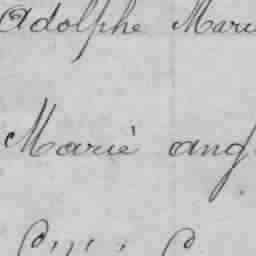 Adolphe Mari
Marié ang